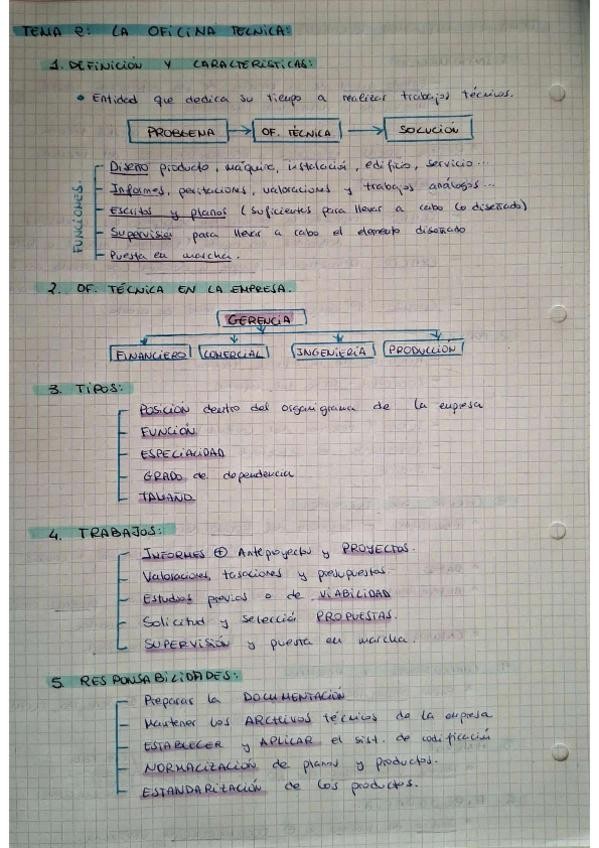 TEMA 2: LA OFICINA TECNICA:
1. DEFINICIÓN Y CARACTERÍSTICAS:
• Entidad que dedica su tiempo a realizar trabajos técnicos.
PROBLEMA → OF. TÉCNICA → SOLUCIÓN
FUNCIONES.
Diseño producto, máquina, instalación, edificio, servicio...
Informes, peritaciones, valoraciones y trabajos análogos...
Escritos y planos (suficientes para llevar a cabo lo diseñado)
Supervisión para llevar a cabo el elemento diseñado
Puesta en marcha.
2. OF. TÉCNICA EN LA EMPRESA.
GERENCIA
FINANCIERO COMERCIAL INGENIERÍA PRODUCCIÓN
3. TIPOS:
POSICIÓN dentro del organigrama de la empresa
FUNCIÓN
ESPECIALIDAD
GRADO de dependencia
TAMAÑO
4. TRABAJOS:
INFORMES ⊕ Anteproyectos y PROYECTOS.
Valoraciones, tasaciones y presupuestos.
Estudios previos o de VIABILIDAD
Solicitud y selección PROPUESTAS.
SUPERVISIÓN y puesta en marcha.
5. RESPONSABILIDADES:
Preparar la DOCUMENTACIÓN
Mantener los ARCHIVOS técnicos de la empresa
ESTABLECER y APLICAR el sist. de codificación
NORMALIZACIÓN de planos y productos.
ESTANDARIZACIÓN de los productos.